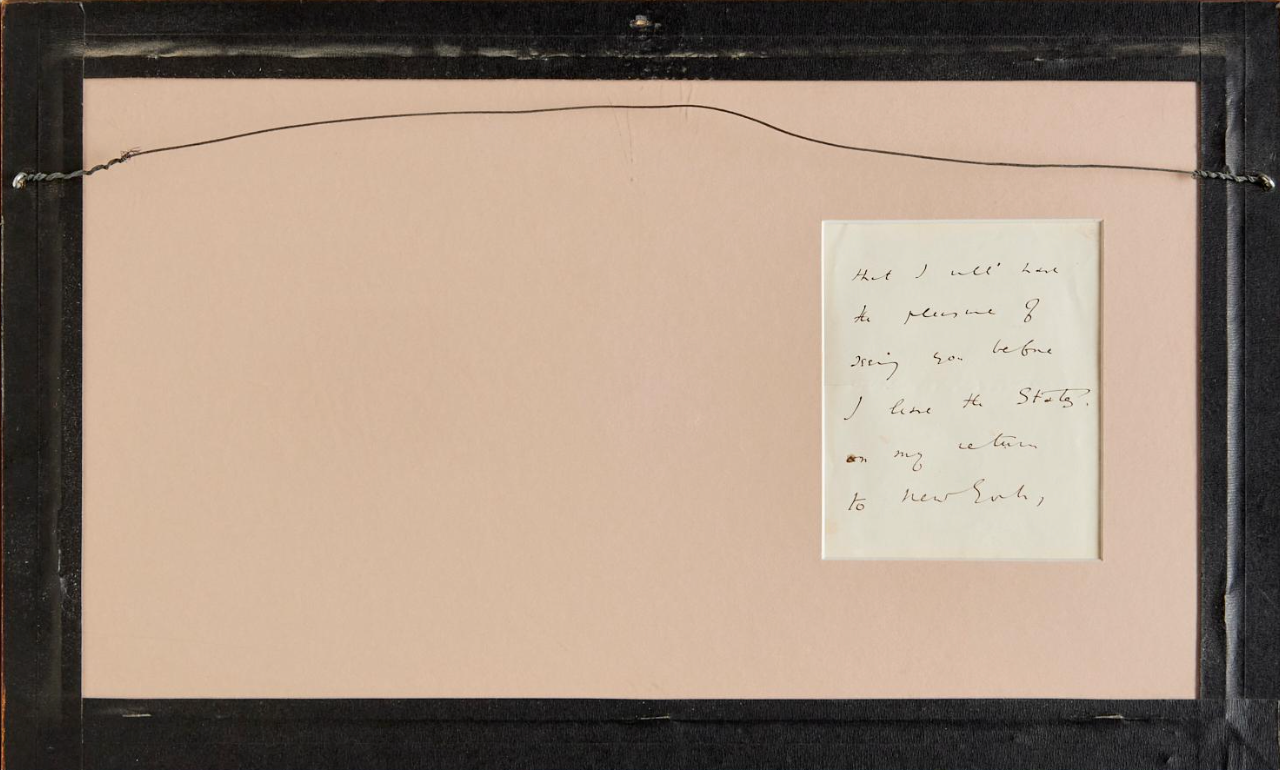 that I will have
the pleasure of
seeing you before
I leave the States.
on my return
to New York,